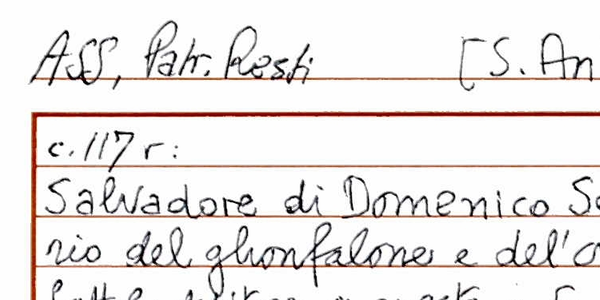 ASS, Patr. Resti [S. An
c. 117 r:
Salvadore di Domenico
rio del ghonfalone e del'